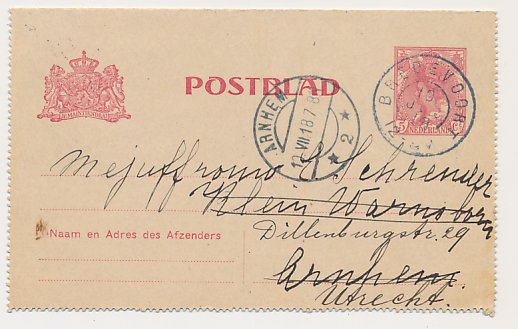 POSTBLAD
JE MAINTIENDRAI
BREDEVOORT
5 Ct
NEDERLAND
ARNHEM
12.VII.18 7-8
2
mejuffrouw G Schrender
Klein Warnsborn
Naam en Adres des Afzenders
Dillenburgstr. 29
Arnhem
Utrecht.